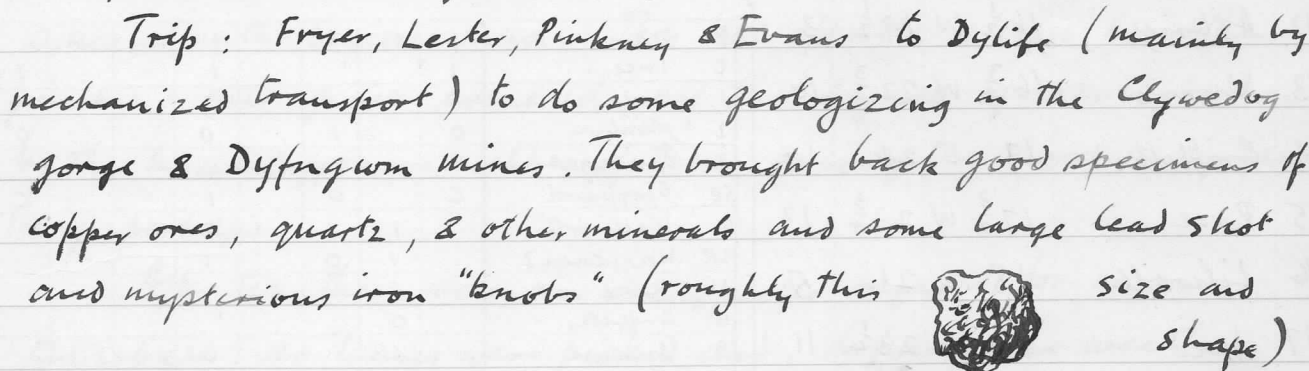 Trip : Fryer, Lester, Pinkney & Evans to Dylife (mainly by
mechanized transport) to do some geologizing in the Clywedog
gorge & Dyfngwm mines. They brought back good specimens of
copper ores, quartz, & other minerals and some large lead shot
and mysterious iron "knobs" (roughly this size and
shape)